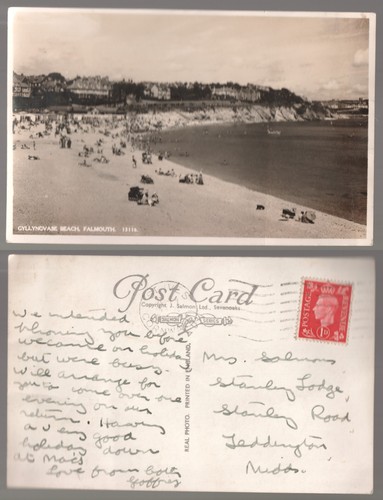 GYLLYNGVASE BEACH, FALMOUTH. 15116.
Post Card
Copyright J. Salmon Ltd., Sevenoaks
We intended
phoning you before
we came on holiday
but were busy.
Will arrange for
you to come over one
evening on our
return. Having
a very good
holiday down
at Mac's
Love from both
Geoffrey
REAL PHOTO. PRINTED IN ENGLAND.
POSTAGE
1D
REVENUE
Mrs. Salmons
Stanley Lodge,
Stanley Road
Teddington
Middx.